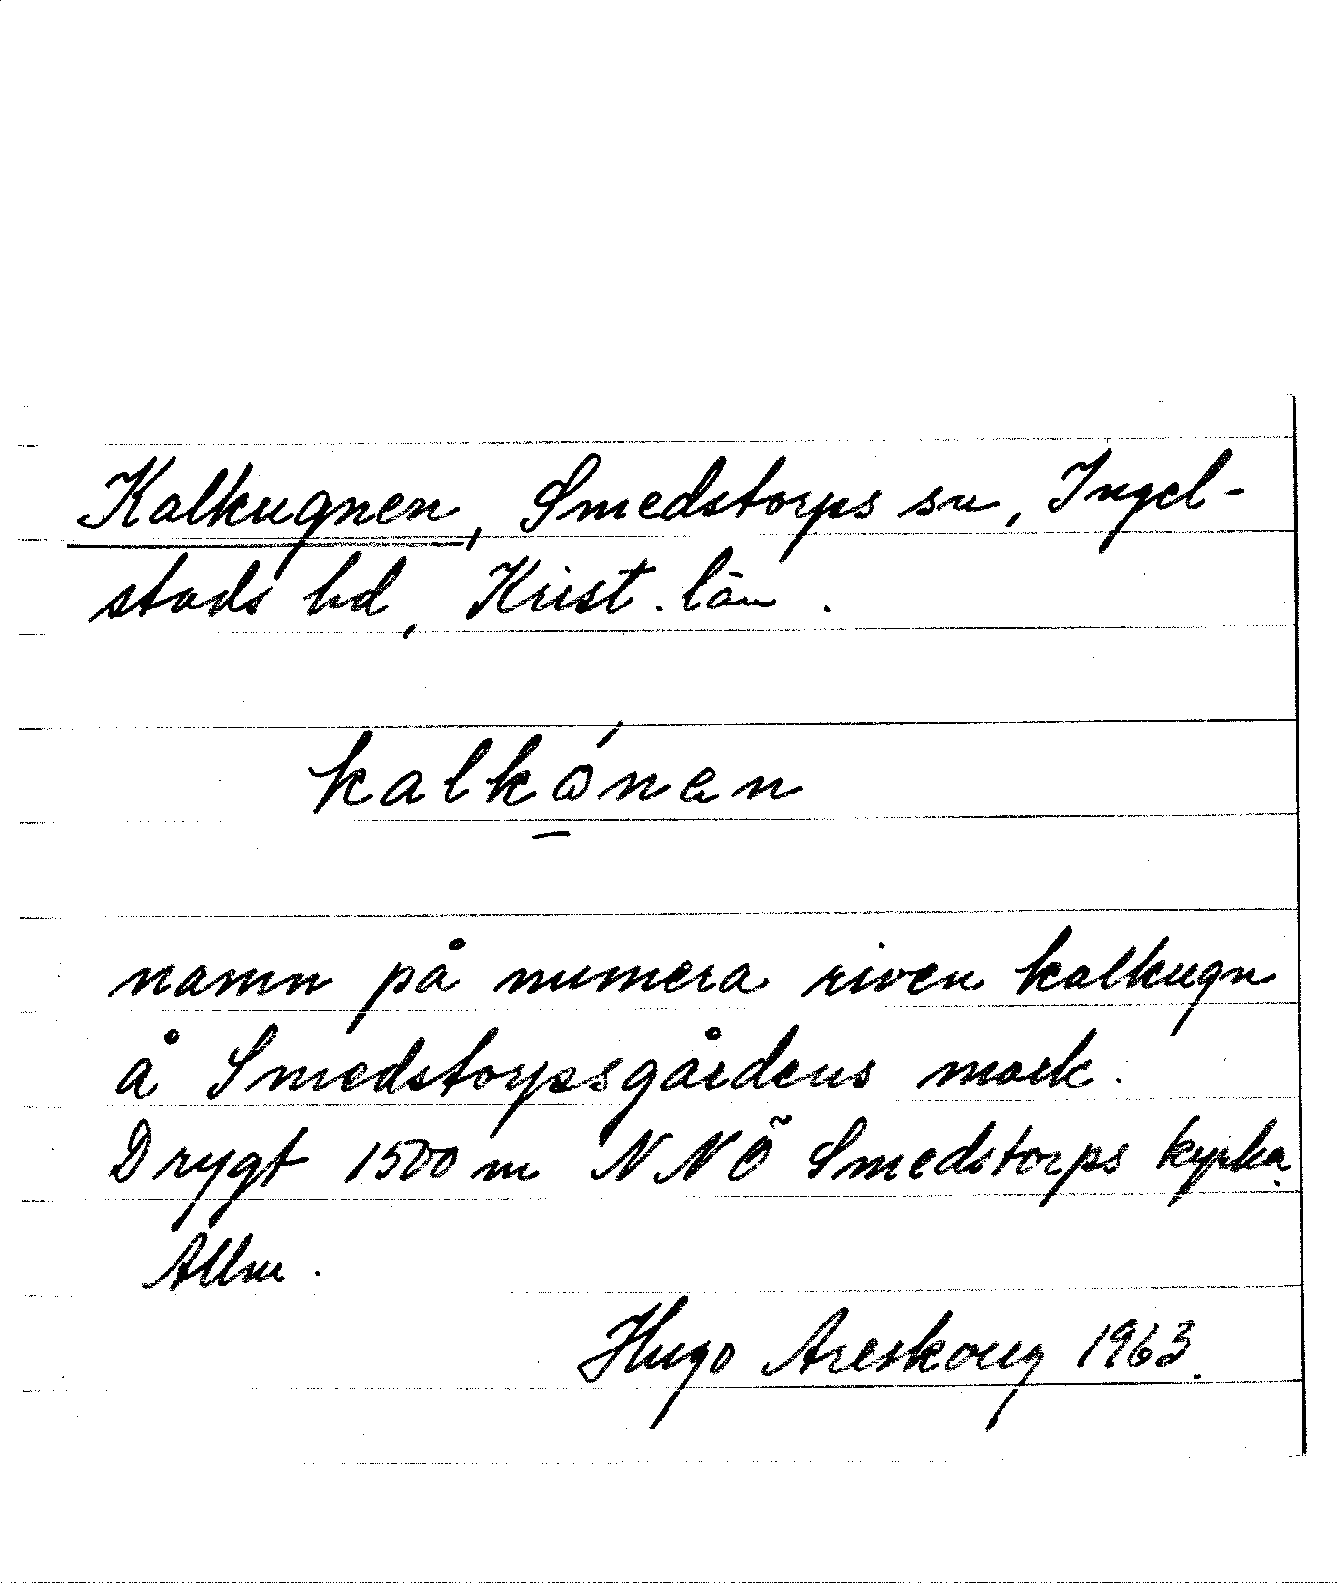 Kalkugnen, Smedstorps sn, Ingel-
stads hd, Krist. län.
kalkọ́nən
namn på numera riven kalkugn
å Smedstorpsgårdens mark.
Drygt 1500 m NNÖ Smedstorps kyrka.
Allm.
Hugo Areskoug 1963.